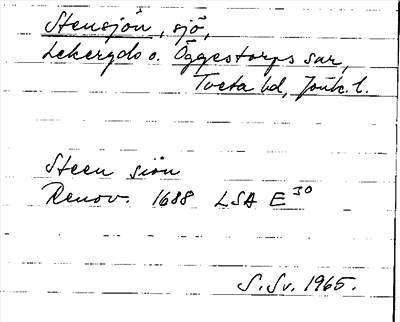 Stensjön, sjö,
Lekeryds o. Öggestorps snr,
Tveta hd, Jönk. l.
Steen siön
Renov. 1688 LSA E 30
S. Sv. 1965.